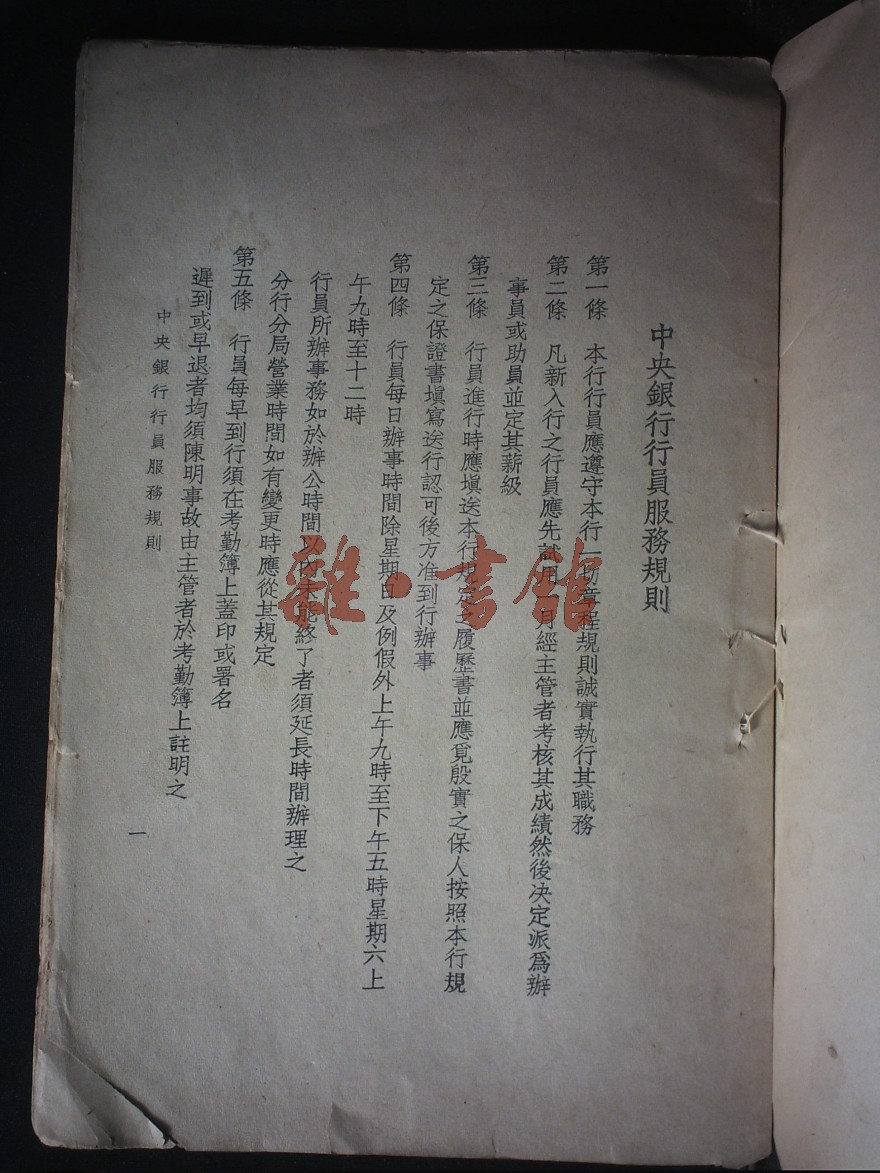 中央銀行行員服務規則
第一條 本行行員應遵守本行一切章程規則誠實執行其職務
第二條 凡新入行之行員應先試用 月經主管者考核其成績然後决定派爲辦
事員或助員並定其薪級
第三條 行員進行時應塡送本行規定之履歷書並應覓殷實之保人按照本行規
定之保證書塡寫送行認可後方准到行辦事
第四條 行員每日辦事時間除星期日及例假外上午九時至下午五時星期六上
午九時至十二時
行員所辦事務如於辦公時間以內未能終了者須延長時間辦理之
分行分局營業時間如有變更時應從其規定
第五條 行員每早到行須在考勤簿上蓋印或署名
遲到或早退者均須陳明事故由主管者於考勤簿上註明之
中央銀行行員服務規則
一
雜·書館